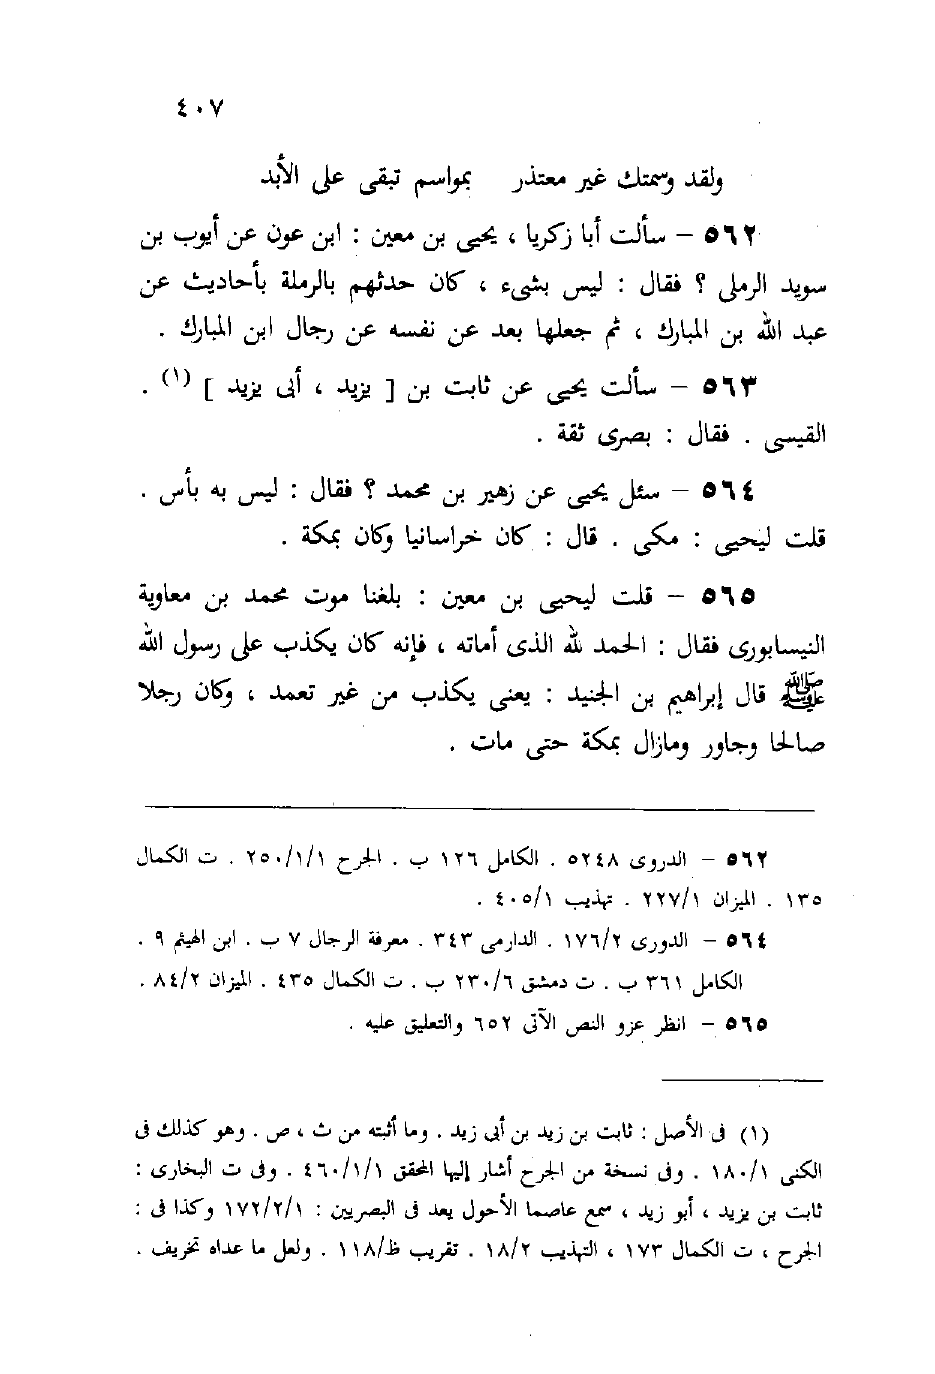 ٤٠٧
ولقد وسمتك غير معتذر بمواسم تبقى على الأبد
٥٦٢ – سألت أبا زكريا ، يحيى بن معين : ابن عون عن أيوب بن
سويد الرملى ؟ فقال : ليس بشىء ، كان حدثهم بالرملة بأحاديث عن
عبد الله بن المبارك ، ثم جعلها بعد عن نفسه عن رجال ابن المبارك .
٥٦٣ – سألت يحيى عن ثابت بن [ يزيد ، أبى يزيد ] (١) .
القيسى . فقال : بصرى ثقة .
٥٦٤ – سئل يحيى عن زهير بن محمد ؟ فقال : ليس به بأس .
قلت ليحيى : مكى . قال : كان خراسانيا وكان بمكة .
٥٦٥ – قلت ليحيى بن معين : بلغنا موت محمد بن معاوية
النيسابورى فقال : الحمد لله الذى أماته ، فإنه كان يكذب على رسول الله
ﷺ قال إبراهيم بن الجنيد : يعنى يكذب من غير تعمد ، وكان رجلا
صالحا وجاور ومازال بمكة حتى مات .
٥٦٢ – الدروى ٥٢٤٨ . الكامل ١٢٦ ب . الجرح ٢٥٠/١/١ . ت الكمال
١٣٥ . الميزان ٢٢٧/١ . تهذيب ٤٠٥/١ .
٥٦٤ – الدورى ١٧٦/٢ . الدارمى ٣٤٣ . معرفة الرجال ٧ ب . ابن الهيثم ٩ .
الكامل ٣٦١ ب . ت دمشق ٢٣٠/٦ ب . ت الكمال ٤٣٥ . الميزان ٨٤/٢ .
٥٦٥ – انظر عزو النص الآتى ٦٥٢ والتعليق عليه .
(١) فى الأصل : ثابت بن زيد بن أبى زيد . وما أثبته من ث ، ص . وهو كذلك فى
الكنى ١٨٠/١ . وفى نسخة من الجرح أشار إليها المحقق ٤٦٠/١/١ . وفى ت البخارى :
ثابت بن يزيد ، أبو زيد ، سمع عاصما الأحول يعد فى البصريين : ١٧٢/٢/١ وكذا فى :
الجرح ، ت الكمال ١٧٣ ، التهذيب ١٨/٢ . تقريب ظ/١١٨ . ولعل ما عداه تخريف .